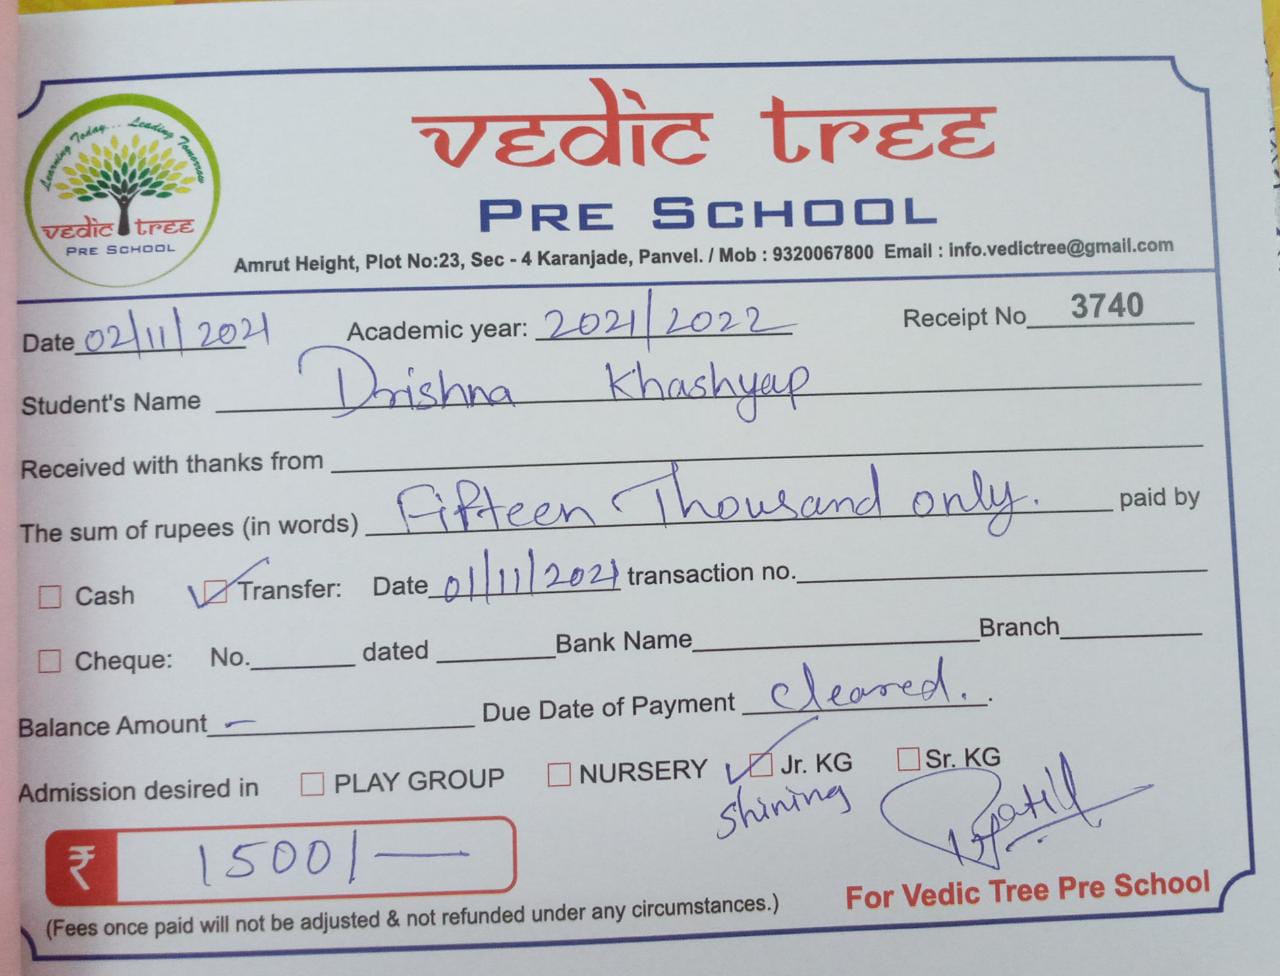 Learning Today... Leading Tomorrow
vedic tree
PRE SCHOOL
vedic tree
PRE SCHOOL
Amrut Height, Plot No:23, Sec - 4 Karanjade, Panvel. / Mob : 9320067800 Email : info.vedictree@gmail.com
Date 02/11/2021 Academic year: 2021/2022 Receipt No 3740
Student's Name Drishna Khashyap
Received with thanks from
The sum of rupees (in words) Fifteen Thousand only. paid by
Cash Transfer: Date 01/11/2021 transaction no.
Cheque: No. dated Bank Name Branch
Balance Amount – Due Date of Payment cleared.
Admission desired in PLAY GROUP NURSERY Jr. KG Sr. KG
shining
₹ 1500/—
For Vedic Tree Pre School
(Fees once paid will not be adjusted & not refunded under any circumstances.)